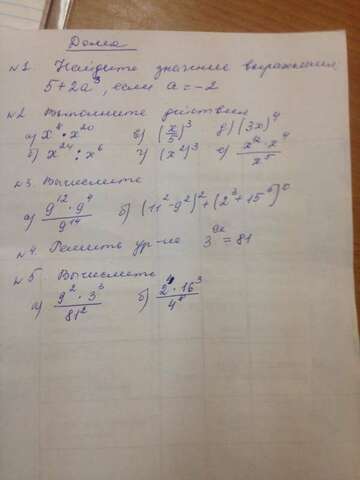 Дома
№1. Найдите значение выражения
5+2a³, если a=-2
№2 Выполните действия
а) x⁸ · x²⁰ в) (x/5)³ д) (3x)⁴
б) x²⁴ : x⁶ г) (x²)³ е) x¹² · x⁴ / x⁵
№3. Вычислите
а) 9¹² · 9⁴ / 9¹⁴ б) (11² - 9²)² + (2³ + 15⁶)⁰
№4. Решить ур-ие 3 = 81
№5 Вычислите
а) 9² · 3³ / 81² б) 2 · 16³ / 4